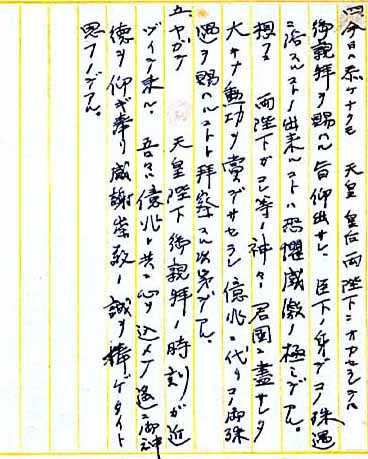 四、今日ハ忝ケナクモ 天皇 皇后両陛下ニオカセラレテハ
御親拝ヲ賜ハル旨仰出サレ、臣下ノ身デコノ殊遇
ニ浴スルコトノ出来ルコトハ恐懼感激ノ極ミデアル。
想フニ 両陛下ガコレ等ノ神々ノ君国ニ盡サレタ
大キナ勲功ヲ賞デサセラレ億兆ニ代リコノ御殊
遇ヲ賜ハルコトト拝察スル次第デアル。
五、ヤガテ 天皇陛下御親拝ノ時刻ガ近
ヅイテ来ル。吾々ハ億兆ト共ニ心ヲ込メテ遥ニ御神
徳ヲ仰ギ奉リ感謝崇敬ノ誠ヲ捧ゲタイト
思フノデアル。